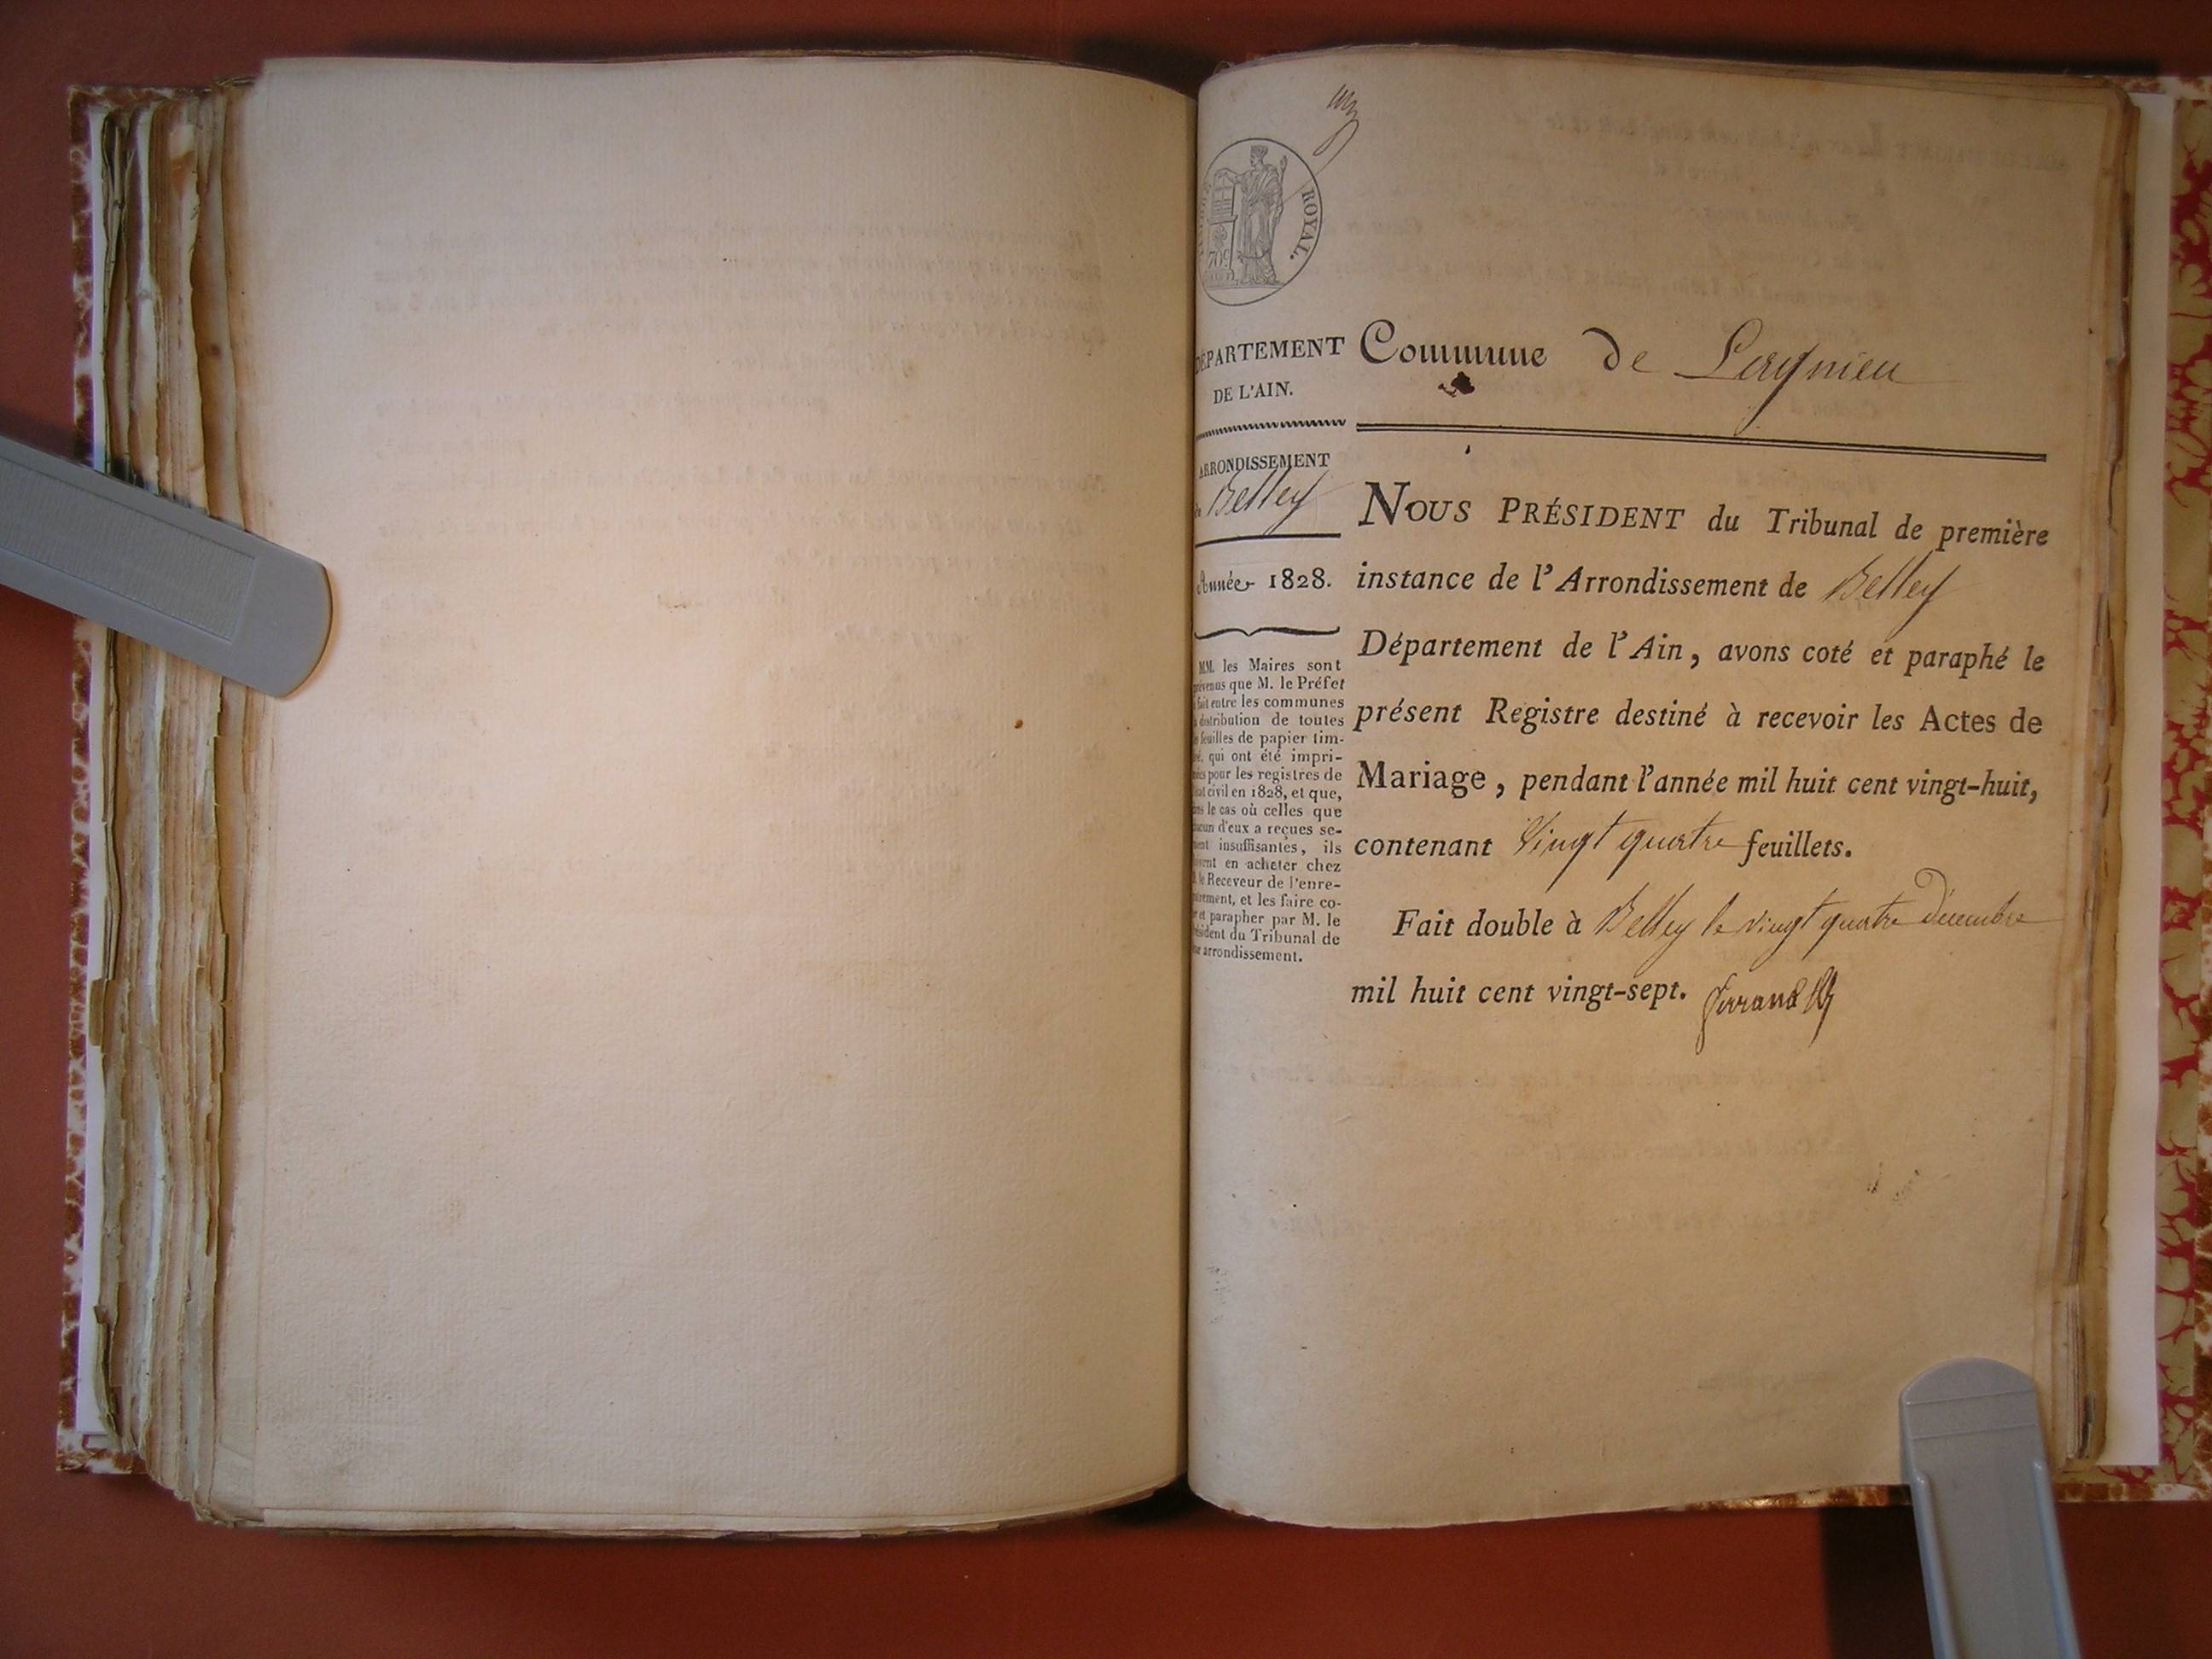 ROYAL.
70c
DÉPARTEMENT
DE L'AIN.
ARRONDISSEMENT
de Belley
Année 1828.
MM. les Maires sont
prévenus que M. le Préfet
a fait entre les communes
la distribution de toutes
les feuilles de papier tim-
bré, qui ont été impri-
mées pour les registres de
l'état civil en 1828, et que,
dans le cas où celles que
chacun d'eux a reçues se-
raient insuffisantes, ils
doivent en acheter chez
M. le Receveur de l'enre-
gistrement, et les faire co-
ter et parapher par M. le
Président du Tribunal de
leur arrondissement.
Commune de Lagnieu
NOUS PRÉSIDENT du Tribunal de première
instance de l'Arrondissement de Belley
Département de l'Ain, avons coté et paraphé le
présent Registre destiné à recevoir les Actes de
Mariage, pendant l'année mil huit cent vingt-huit,
contenant Vingt quatre feuillets.
Fait double à Belley le vingt quatre Décembre
mil huit cent vingt-sept. ferrand